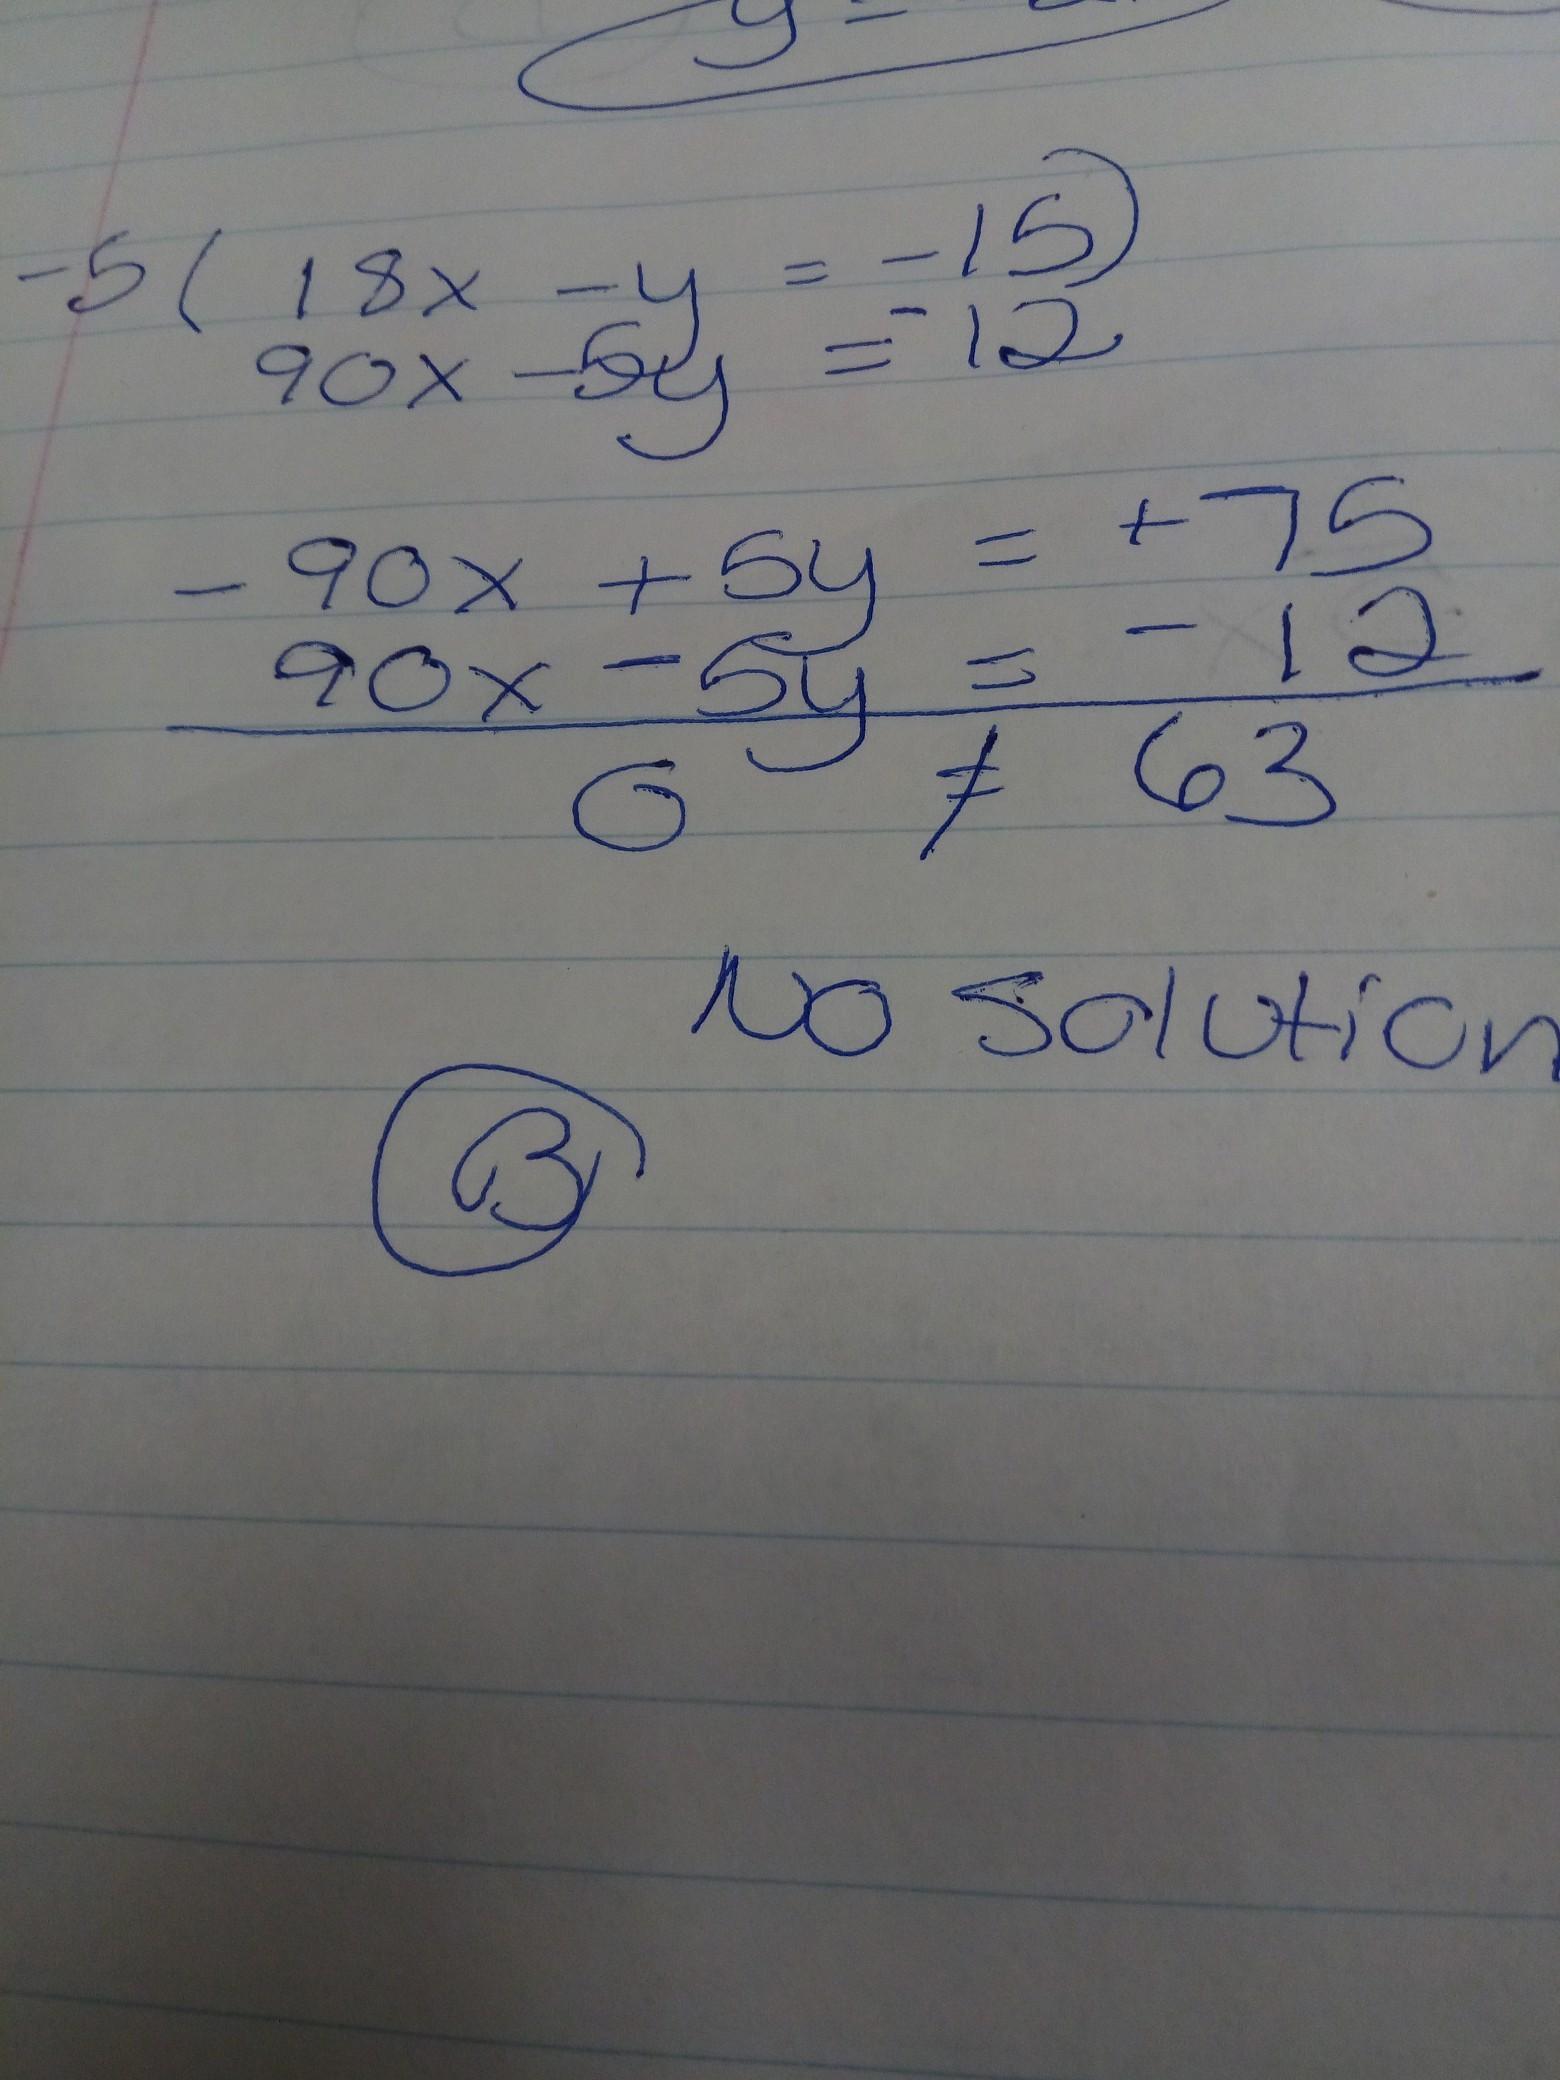 y =
-5 ( 18x - y = -15)
90x - 5y = -12
- 90x + 5y = + 75
90x - 5y = - 12
0 ≠ 63
No solution
B